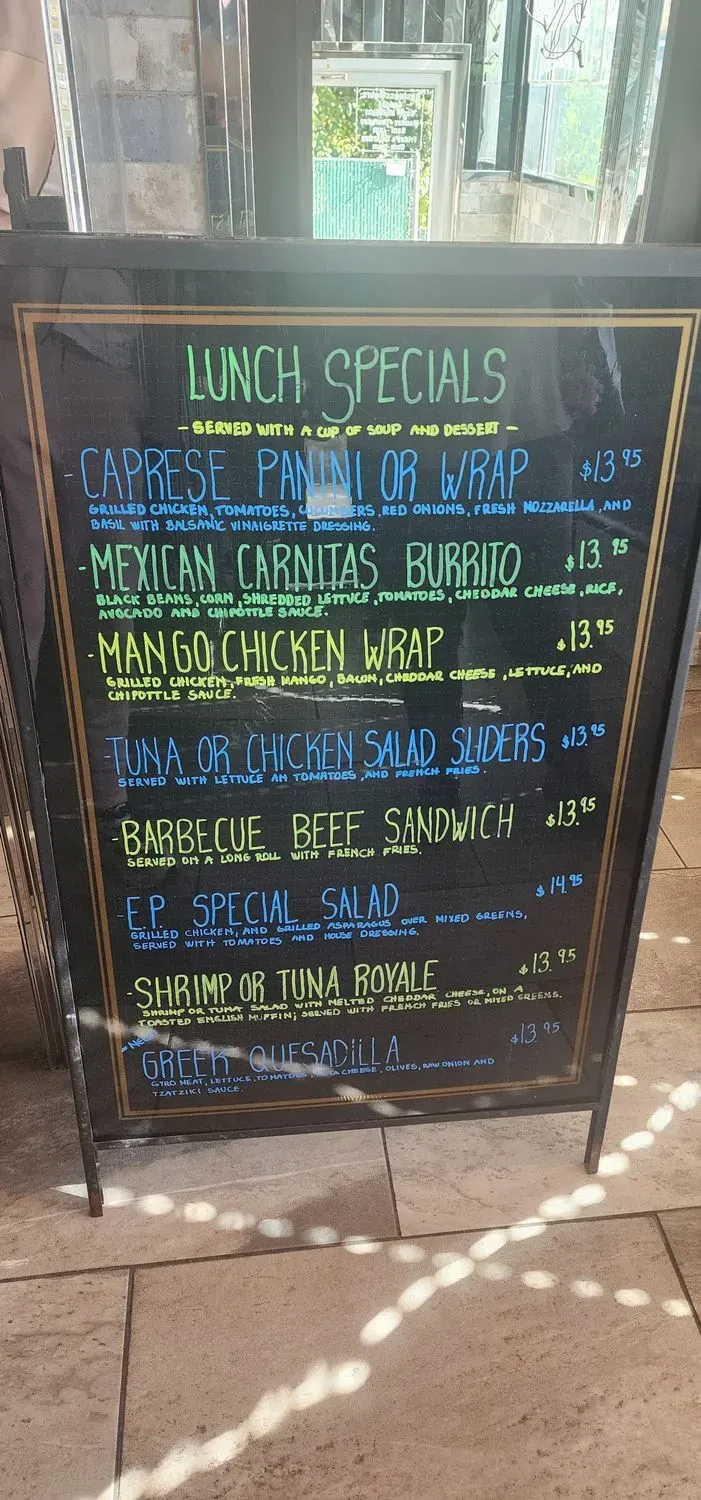 LUNCH SPECIALS
- SERVED WITH A CUP OF SOUP AND DESSERT -
- CAPRESE PANINI OR WRAP $13.95
GRILLED CHICKEN, TOMATOES, CUCUMBERS, RED ONIONS, FRESH MOZZARELLA, AND
BASIL WITH BALSANIC VINAIGRETTE DRESSING.
- MEXICAN CARNITAS BURRITO $13.95
BLACK BEANS, CORN, SHREDDED LETTUCE, TOMATOES, CHEDDAR CHEESE, RICE,
AVOCADO AND CHIPOTTLE SAUCE.
- MANGO CHICKEN WRAP $13.95
GRILLED CHICKEN, FRESH MANGO, BACON, CHEDDAR CHEESE, LETTUCE, AND
CHIPOTTLE SAUCE.
- TUNA OR CHICKEN SALAD SLIDERS $13.95
SERVED WITH LETTUCE AN TOMATOES, AND FRENCH FRIES.
- BARBECUE BEEF SANDWICH $13.95
SERVED ON A LONG ROLL WITH FRENCH FRIES.
- E.P. SPECIAL SALAD $14.95
GRILLED CHICKEN, AND GRILLED ASPARAGUS OVER MIXED GREENS,
SERVED WITH TOMATOES AND HOUSE DRESSING.
- SHRIMP OR TUNA ROYALE $13.95
SHRIMP OR TUNA SALAD WITH MELTED CHEDDAR CHEESE, ON A
TOASTED ENGLISH MUFFIN; SERVED WITH FRENCH FRIES OR MIXED GREENS.
GREEK QUESADILLA $13.95
GYRO MEAT, LETTUCE, TOMATOES, CHEESE, OLIVES, RAW ONION AND
TZATZIKI SAUCE.